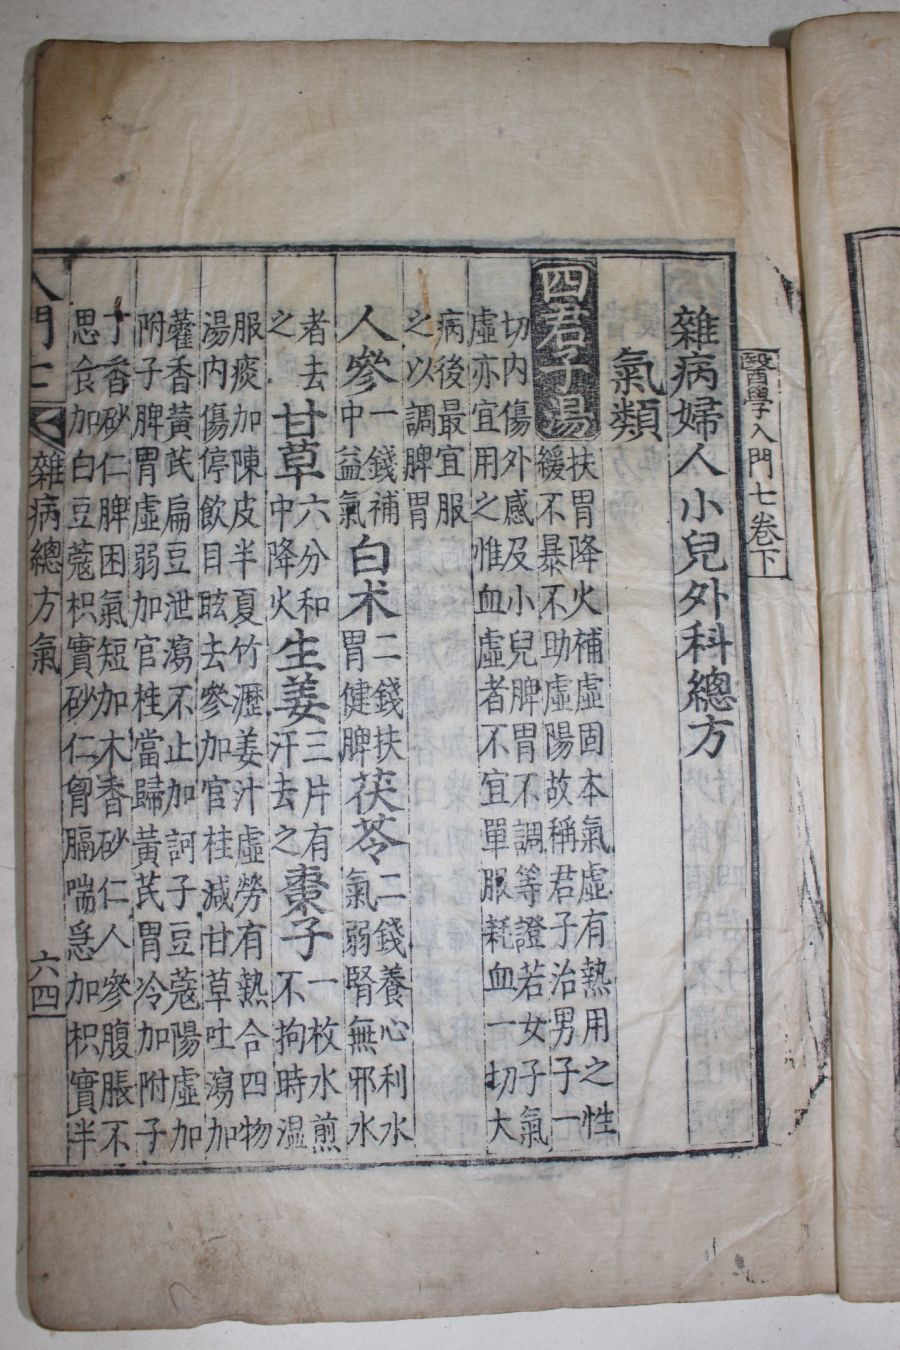 醫學入門七卷下
雜病婦人小兒外科總方
氣類
四君子湯
扶胃降火補虛固本氣虛有熱用之性
緩不暴不助虛陽故稱君子治男子一
切內傷外感及小兒脾胃不調等證若女子氣
虛亦宜用之惟血虛者不宜單服耗血一切大
病後最宜服
之以調脾胃
人參一錢補中益氣白朮二錢扶胃健脾茯苓二錢養心利水氣弱腎無邪水
者去之甘草六分和中降火生姜三片有汗去之棗子一枚水煎不拘時溫
服痰加陳皮半夏竹瀝姜汁虛勞有熱合四物
湯內傷停飲目眩去參加官桂減甘草吐瀉加
藿香黃芪扁豆泄瀉不止加訶子豆蔻陽虛加
附子脾胃虛弱加官桂當歸黃芪胃冷加附子
丁香砂仁脾困氣短加木香砂仁人參腹脹不
思食加白豆蔻枳實砂仁胷膈喘急加枳實半
入門七 雜病總方氣 六四